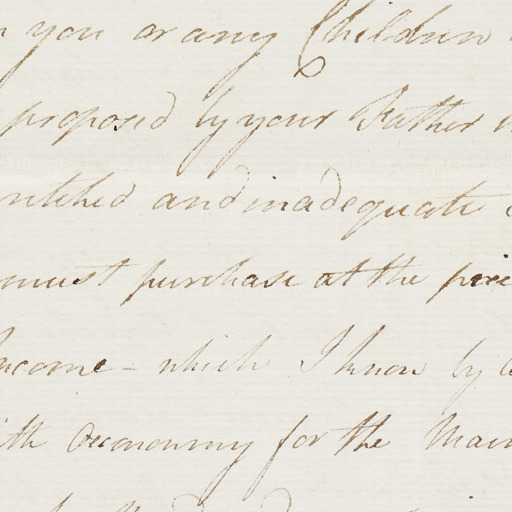 you or any Children
proposed by your Father
and inadequate
must purchase at the
Income - which I know by
Oeconomy for the Main